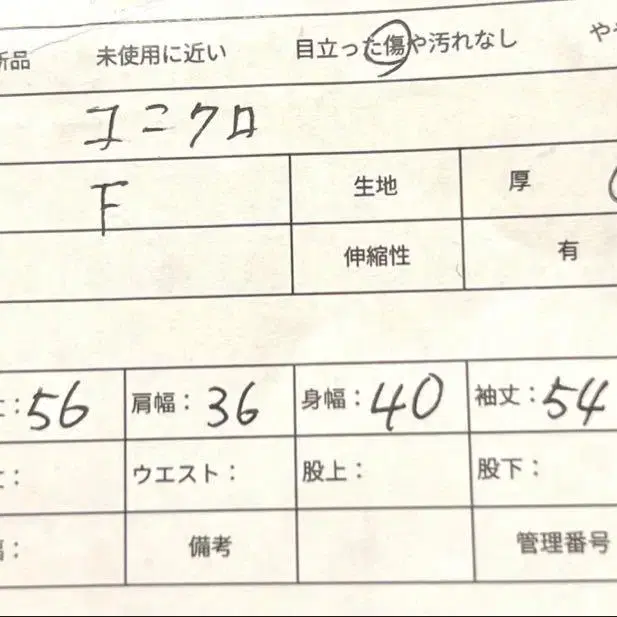 新品 未使用に近い 目立った傷や汚れなし や
ユニクロ
F 生地 厚
伸縮性 有
丈：56 肩幅：36 身幅：40 袖丈：54
ウエスト： 股上： 股下：
備考 管理番号